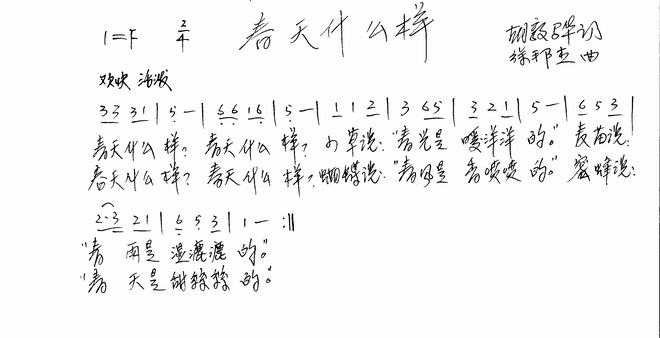 1=F 2/4 春天什么样 胡敦骅词
徐邦杰曲
欢快 活泼
3 3 3 1 | 5 — | 6 6 1 6 | 5 — | 1 1 2 | 3 6 5 | 3 2 1 | 5 — | 6 5 3 |
春天什么样？春天什么样？小草说：“春光是暖洋洋的。”麦苗说：
春天什么样？春天什么样？蝴蝶说：“春风是香喷喷的。”蜜蜂说：
2·3 2 1 | 6 5 3 | 1 — :||
“春雨是湿漉漉的。”
“春天是甜
的。”